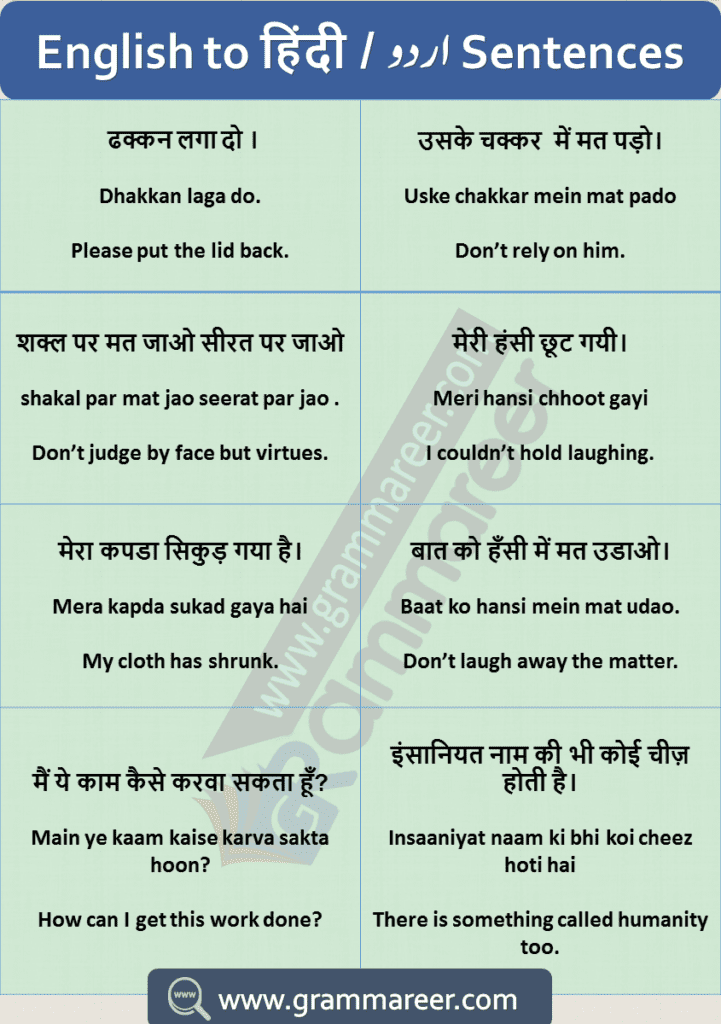 English to हिंदी / اردو Sentences
ढक्कन लगा दो ।
Dhakkan laga do.
Please put the lid back.
उसके चक्कर में मत पड़ो।
Uske chakkar mein mat pado
Don’t rely on him.
शक्ल पर मत जाओ सीरत पर जाओ
shakal par mat jao seerat par jao .
Don’t judge by face but virtues.
मेरी हंसी छूट गयी।
Meri hansi chhoot gayi
I couldn’t hold laughing.
मेरा कपडा सिकुड़ गया है।
Mera kapda sukad gaya hai
My cloth has shrunk.
बात को हँसी में मत उडाओ।
Baat ko hansi mein mat udao.
Don’t laugh away the matter.
मैं ये काम कैसे करवा सकता हूँ?
Main ye kaam kaise karva sakta
hoon?
How can I get this work done?
इंसानियत नाम की भी कोई चीज़
होती है।
Insaaniyat naam ki bhi koi cheez
hoti hai
There is something called humanity
too.
www.grammareer.com
GRammareer
www
www.grammareer.com